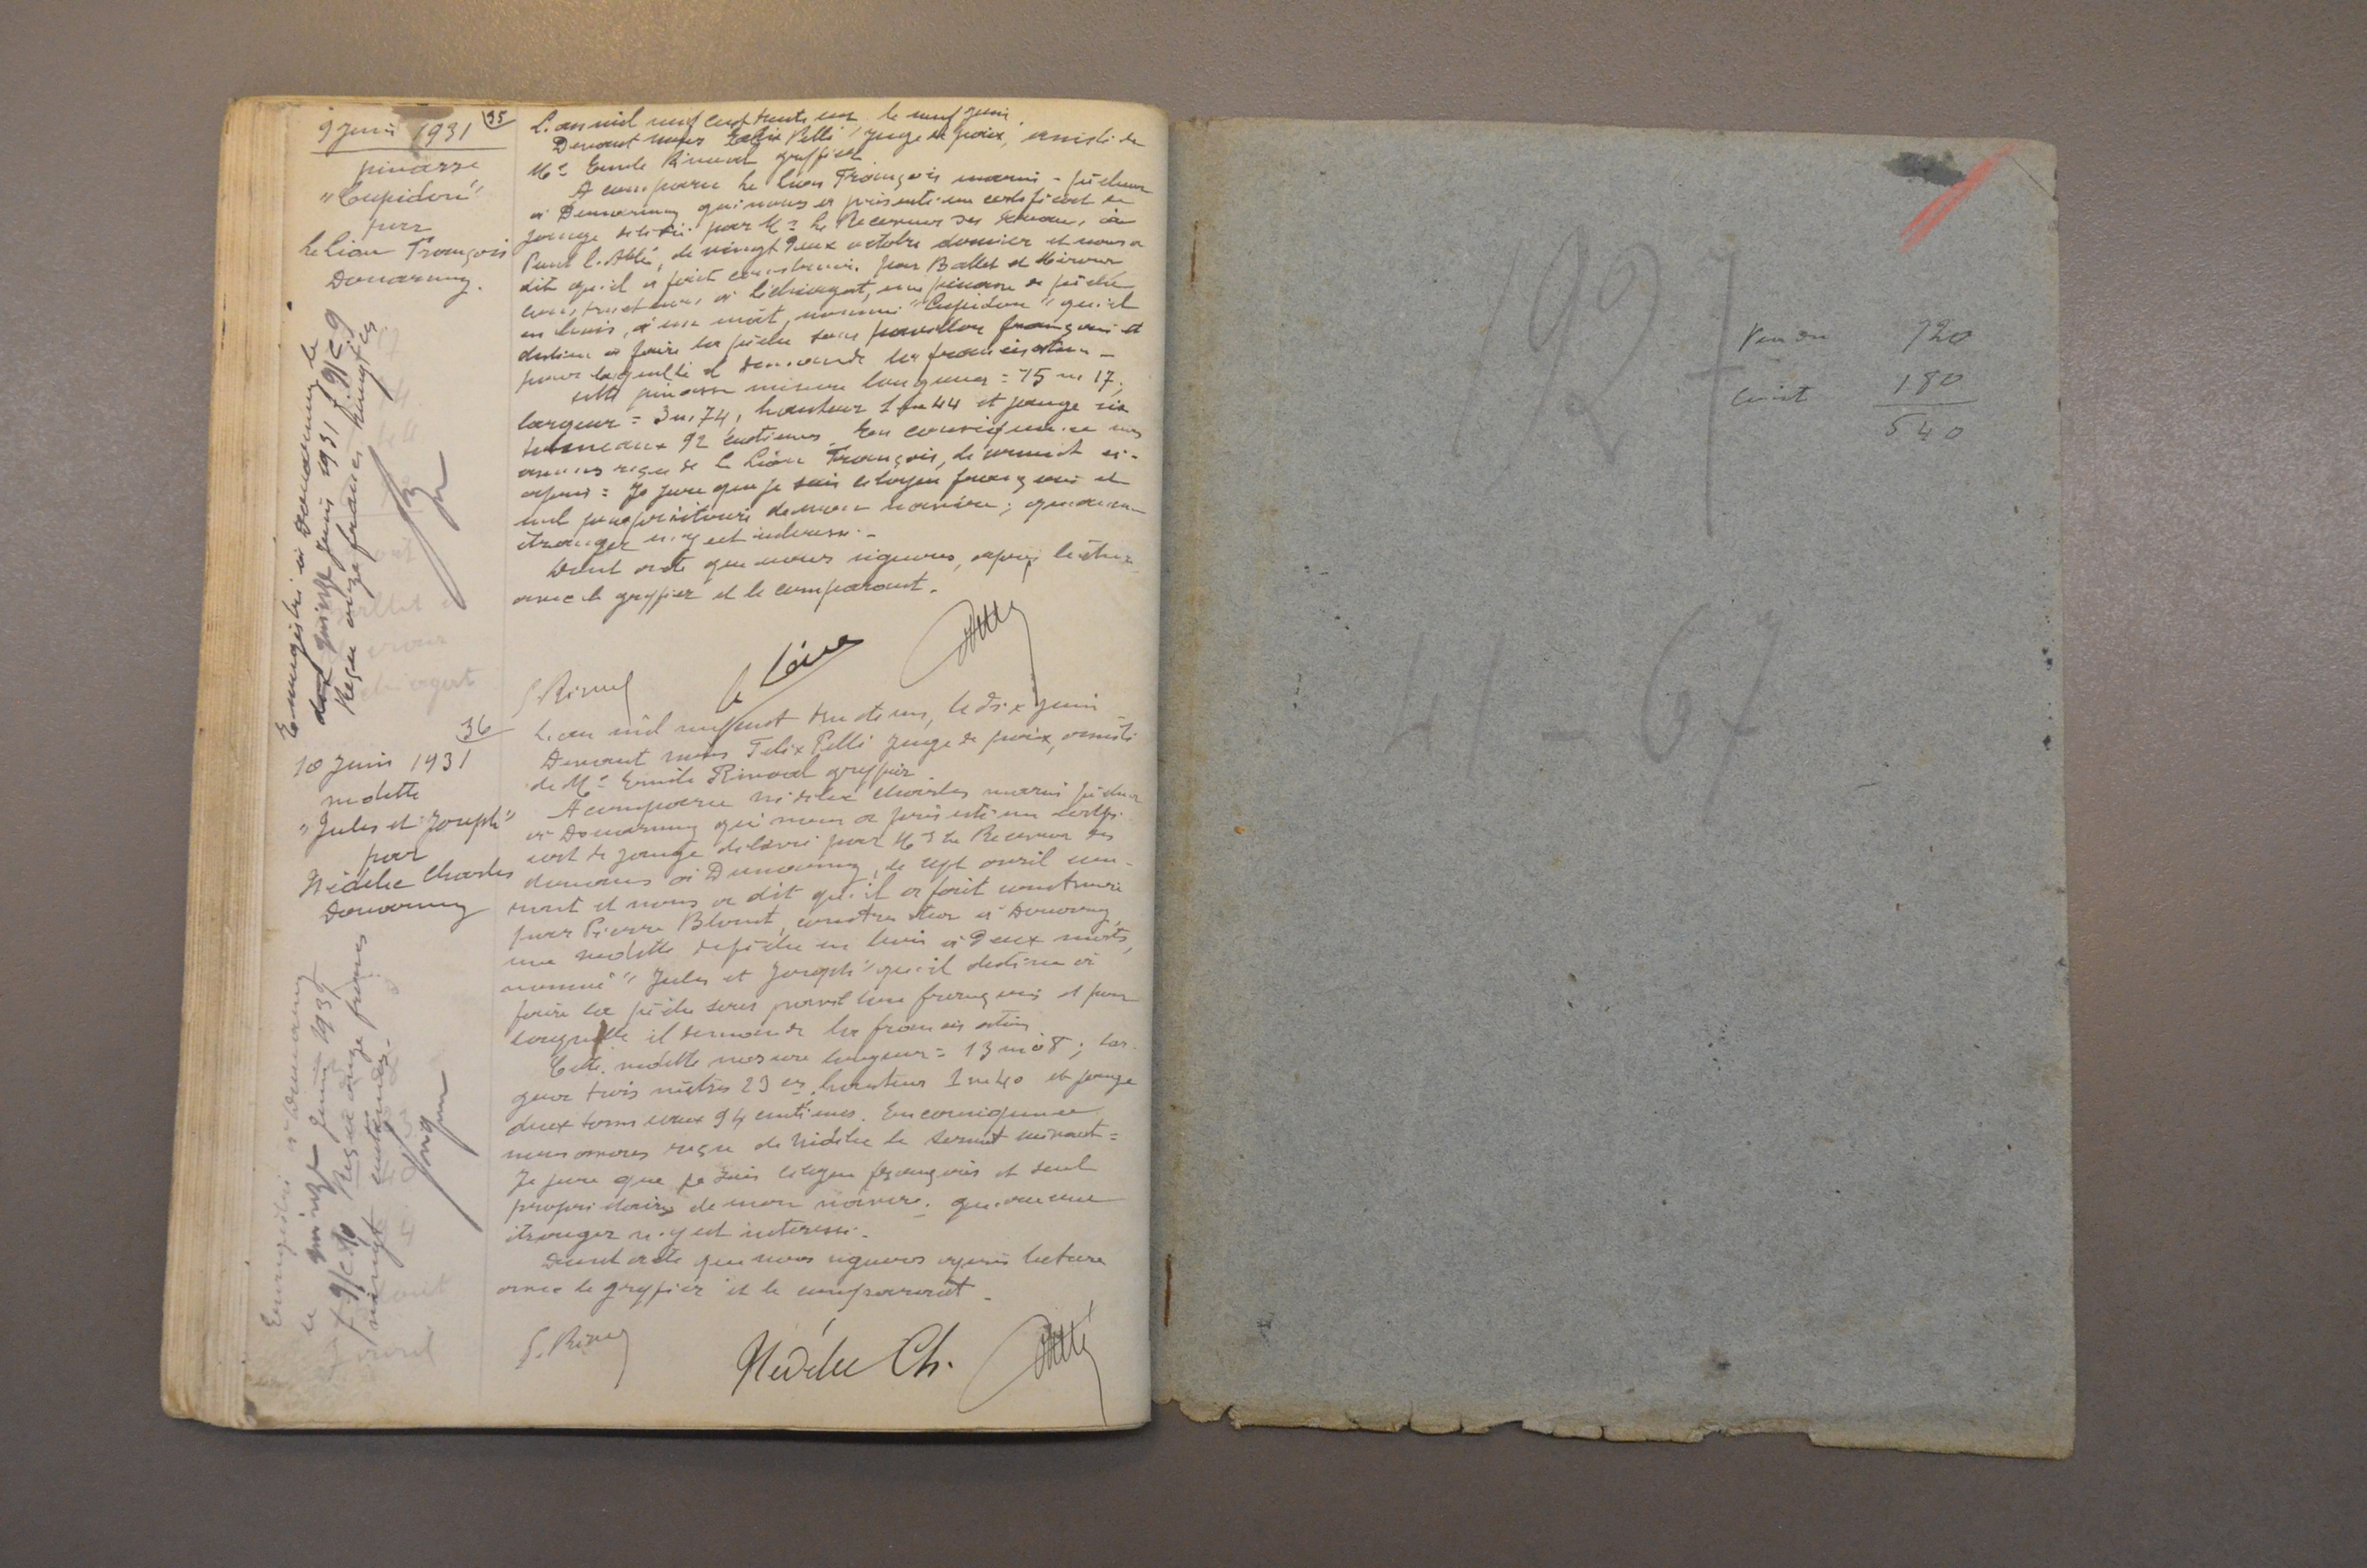 35
9 Juin 1931
pinasse
"Cupidon"
par
Le Lion François
Douarnenez.
Enregistré à Douarnenez le
quinze Juin 1931 f. 9/C. 9
Reçu onze francs vingt cts
L'an mil neuf cent trente un, le neuf Juin.
Devant nous Félix Pellé Juge de paix, assisté de
Me Emile Rivoal greffier
A comparu Le Lion François marin-pêcheur
à Douarnenez qui nous a présenté un certificat de
jauge délivré par Mr le Receveur des Douanes à
Pont l'Abbé, le vingt deux octobre dernier et nous a
dit qu'il a fait construire par Ballet et
constructeurs à Léchiagat, une pinasse de pêche
en bois, à un mât, nommé "Cupidon" qu'il
destine à faire la pêche sous pavillon français et
pour laquelle il demande la francisation -
Cette pinasse mesure longueur = 15 m 17,
largeur = 3 m, 74, hauteur 1 m 44 et jauge six
tonneaux 92 centièmes. En conséquence nous
avons reçu de Le Lion François, le serment ci-
après = Je jure que je suis citoyen français et
seul propriétaire de mon navire; qu'aucun
étranger n'y est intéressé. -
Dont acte que nous signons, après lecture
avec le greffier et le comparant.
E. Rivoal
36
10 Juin 1931
"Jules et Joseph"
par
Nédélec Charles
Douarnenez
Enregistré à Douarnenez
le quinze Juin 1931
f. 9/C. 10 Reçu onze francs
vingt centimes.
L'an mil neuf cent trente un, le dix Juin
Devant nous Félix Pellé Juge de paix, assisté
de Me Emile Rivoal greffier.
A comparu Nédélec Charles marin pêcheur
à Douarnenez qui nous a présenté un certifi-
cat de jauge délivré par Mr le Receveur des
douanes à Douarnenez, le sept avril cou-
rant et nous a dit qu'il a fait construire
par Pierre constructeur à Douarnenez,
une de pêche en bois à deux mâts,
nommé "Jules et Joseph" qu'il destine à
faire la pêche sous pavillon français et pour
laquelle il demande la francisation
Cette mesure longueur = 13 m 08; lar-
geur trois mètres 23 cm, hauteur 1 m 40 et jauge
deux tonneaux 94 centièmes. En conséquence
nous avons reçu de Nédélec le serment suivant =
Je jure que je suis citoyen français et seul
propriétaire de mon navire; qu'aucun
étranger n'y est intéressé.
Dont acte que nous signons après lecture
avec le greffier et le comparant.
E. Rivoal
Nédélec Ch.
197
12
41 - 67
720
180
540